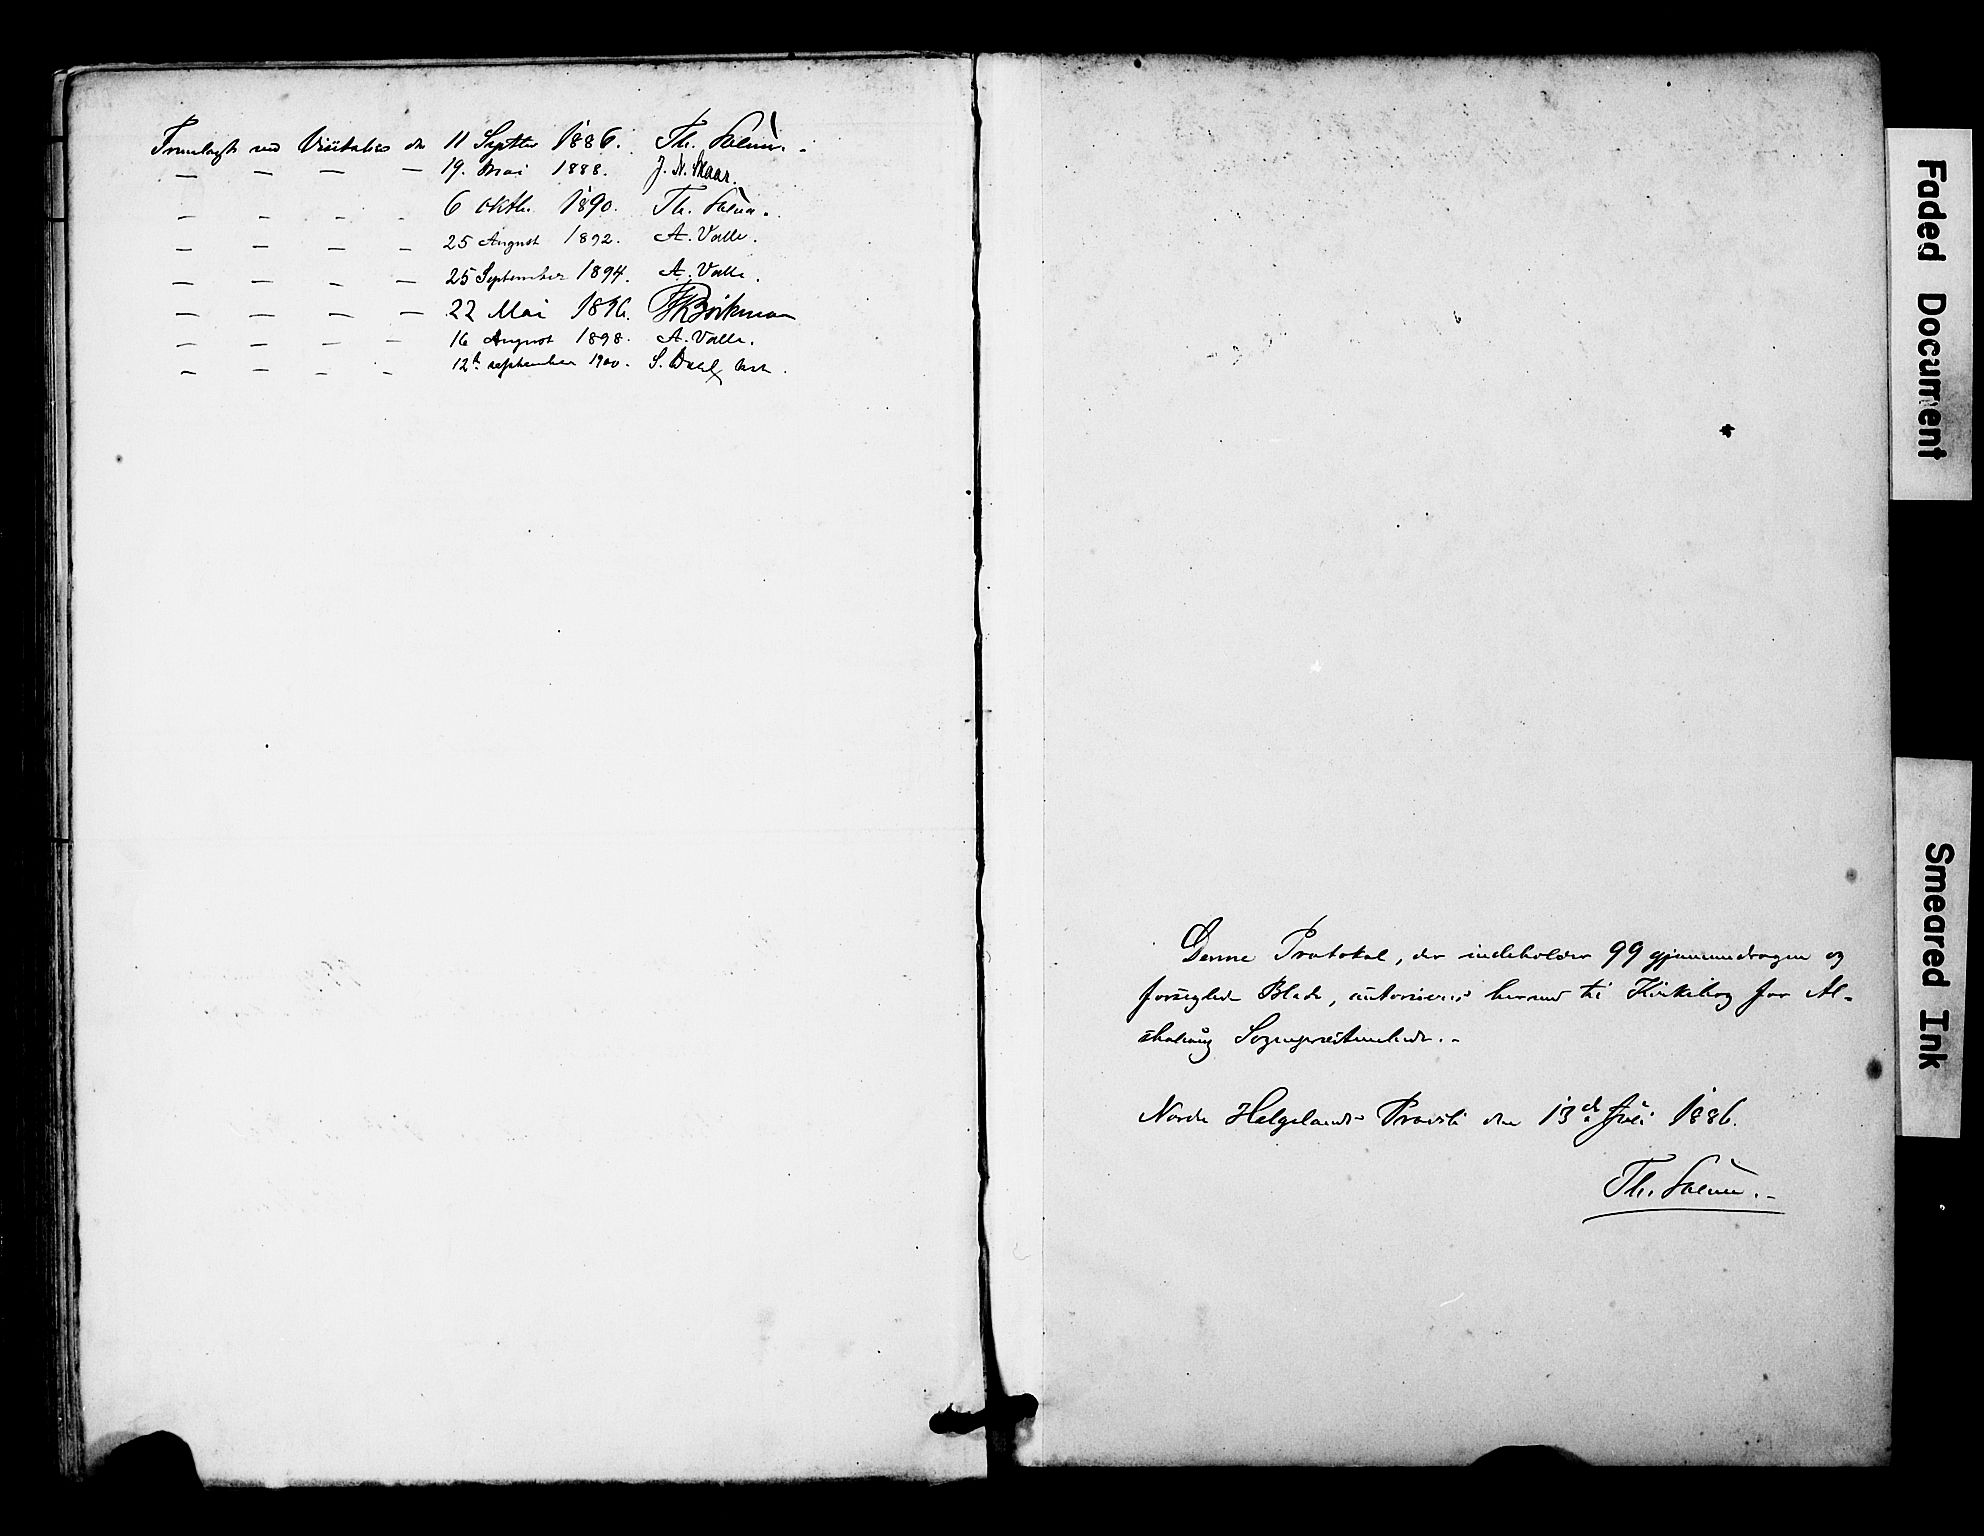 Fremlagt ved Visitatis den 11 Septbr 1886. Th. Solem.-
— — — — 19. Mai 1888. J. N. Skaar.
— — — - 6 Oktbr. 1890. Th. Solem.
— — — — 25 August 1892. A. Valle.
— — — — 25 September 1894. A. Valle.
— — — — 22 Mai 1896. Bøckman
— — — — 16 August 1898. A. Valle.
— — — - 12te september 1900. S. Dahl,
Denne Protokol, der indeholder 99 gjennemdragne og
forseglede Blade, autoriseres herved til Kirkebog for Al-
stahaug Sogneprestembede.-
Nordre Helgelands Provsti den 13de Juli 1886.
Th. Solem.-
Faded Document
Smeared Ink